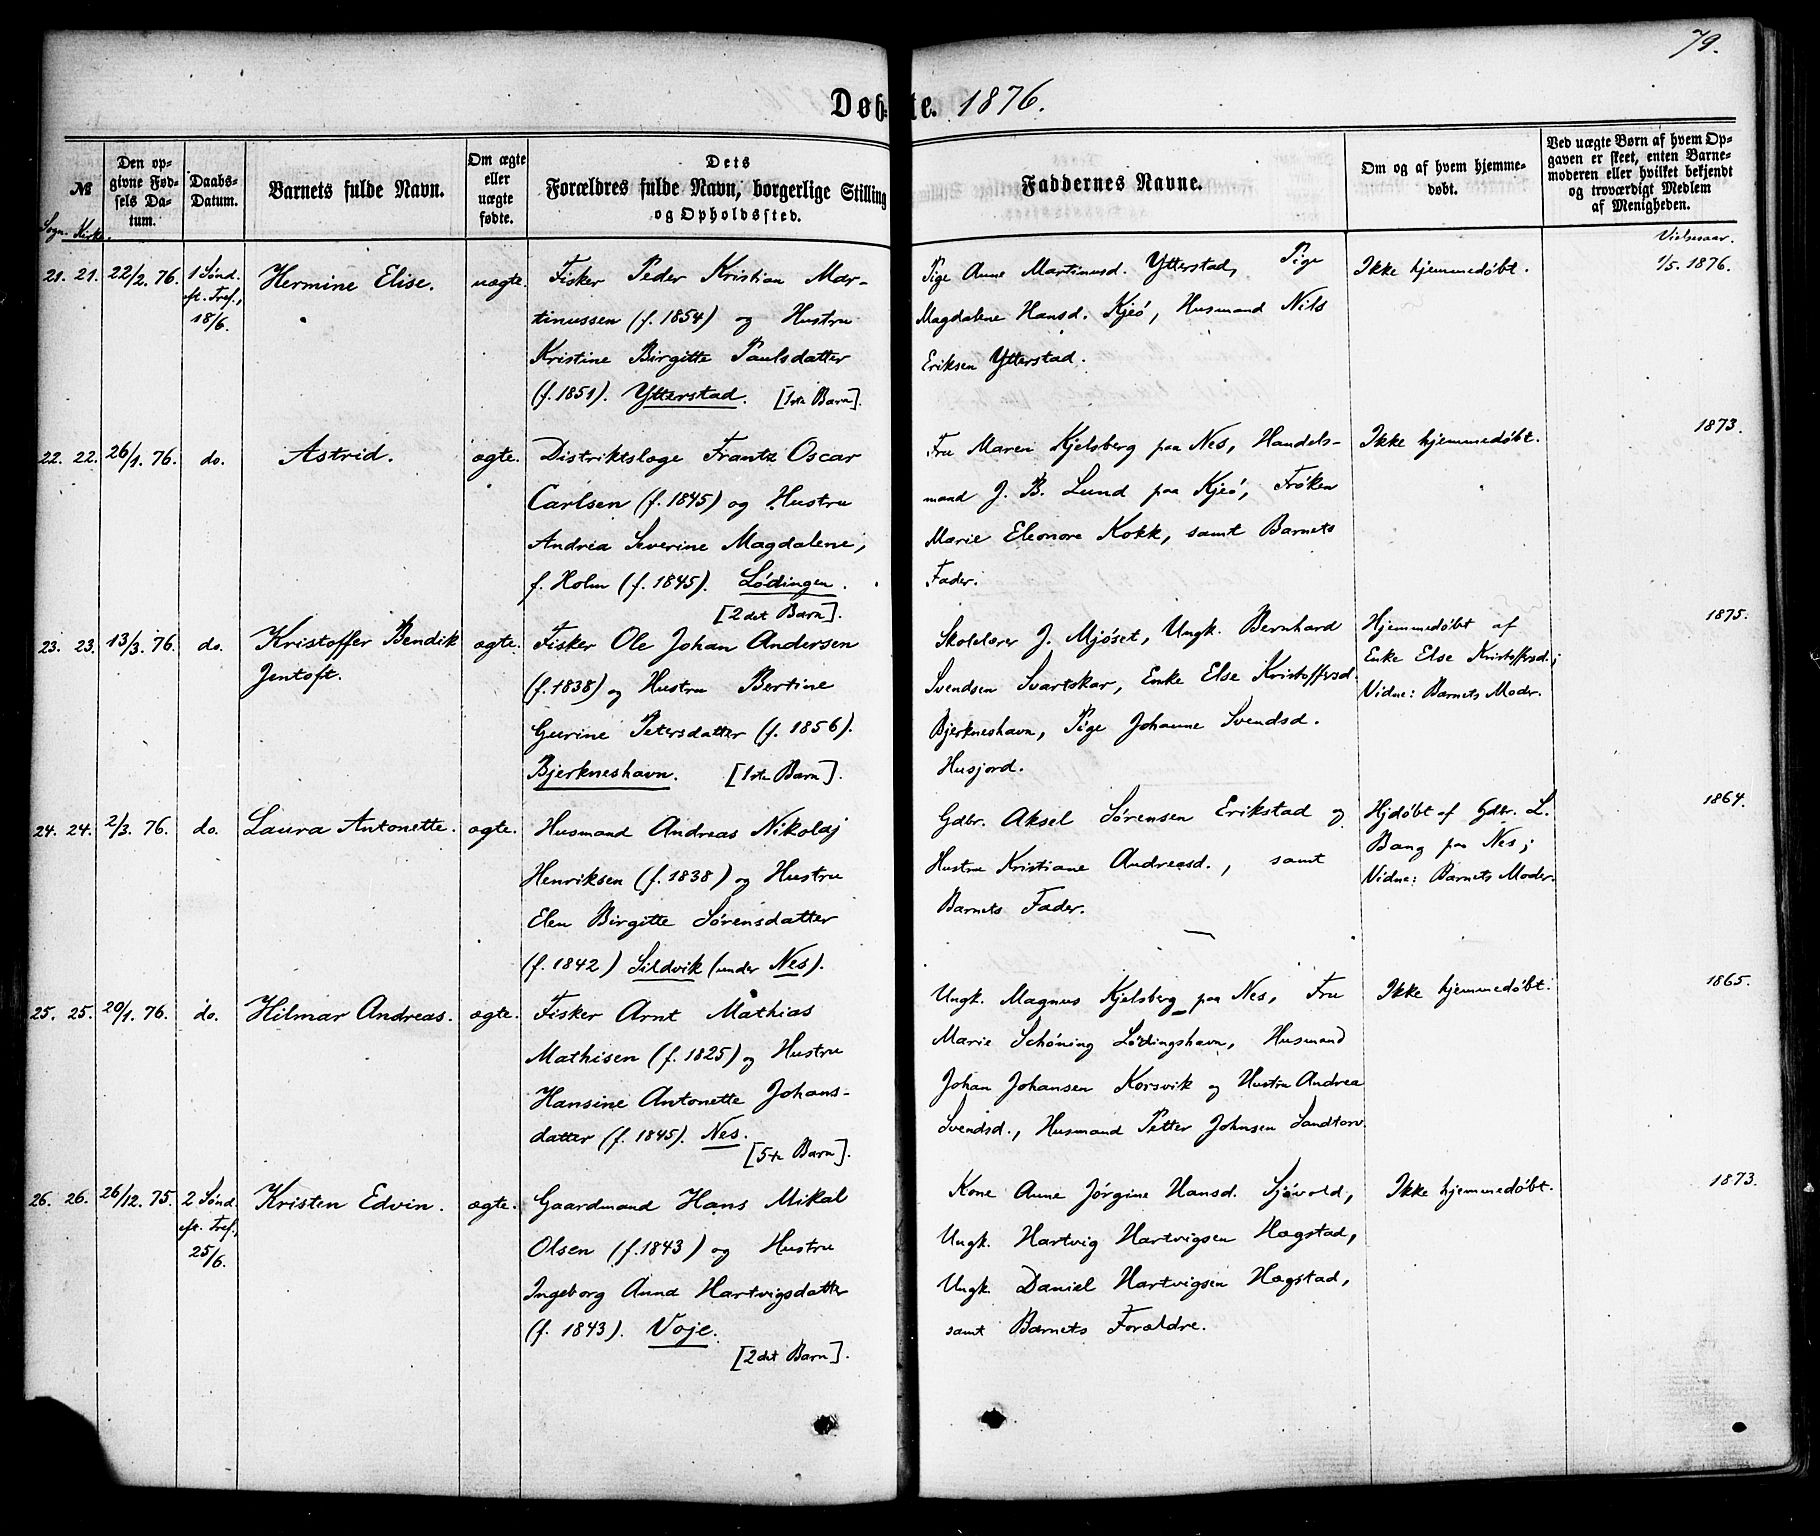 79.
Døbte. 1876.
№
Sogn. Kirke.
Den opgivne Fødsels Datum.
Daabs-Datum.
Barnets fulde Navn.
Om ægte eller uægte fødte.
Dets Forældres fulde Navn, borgerlige Stilling og Opholdssted.
Faddernes Navne.
Om og af hvem hjemmedøbt.
Ved uægte Børn af hvem Opgaven er skeet, enten Barnemoderen eller hvilket bekjendt og troværdigt Medlem af Menigheden.
Vielsesaar.
21. 21. 22/2. 76.
1 Sønd. eft. Tref., 18/6.
Hermine Elise.
uægte.
Fisker Peder Kristian Mar-
tinussen (f. 1854) og Hustru
Kristine Birgitte Paulsdatter
(f. 1851). Ytterstad. [1ste Barn].
Pige Anne Martinusd. Ytterstad, Pige
Magdalene Hansd. Kjeø, Husmand Nils
Eriksen Ytterstad.
Ikke hjemmedøbt.
1/5. 1876.
22. 22. 26/1. 76. do.
Astrid.
ægte.
Distriktslæge Frantz Oscar
Carlsen (f. 1845) og Hustru
Andrea Severine Magdalene,
f. Holm (f. 1845). Lødingen.
[2det Barn].
Fru Maren Kjelsberg paa Nes, Handels-
mand J. B. Lund paa Kjeø, Frøken
Marie Eleonore Kokk, samt Barnets
Fader.
Ikke hjemmedøbt.
1873.
23. 23. 13/3. 76. do.
Kristoffer Bendik
Jentoft.
ægte.
Fisker Ole Johan Andersen
(f. 1838) og Hustru Bertine
Geerine Petersdatter (f. 1856).
Bjerkneshavn. [1ste Barn].
Skolelærer J. Mjøset, Ungk. Bernhard
Svendsen Svartskar, Enke Else Kristoffersd.
Bjerkneshavn, Pige Johanne Svendsd.
Husjord.
Hjemmedøbt af
Enke Else Kristoffersd.;
Vidne: Barnets Moder.
1875.
24. 24. 2/3. 76. do.
Laura Antonette.
ægte.
Husmand Andreas Nikolaj
Henriksen (f. 1838) og Hustru
Elen Birgitte Sørensdatter
(f. 1842) Sildvik (under Nes).
Gdbr. Aksel Sørensen Erikstad og
Hustru Kristiane Andreasd., samt
Barnets Fader.
Hjdøbt af Gdbr. L.
Bang paa Nes;
Vidne: Barnets Moder.
1864.
25. 25. 20/1. 76. do.
Hilmar Andreas.
ægte.
Fisker Arnt Mathias
Mathisen (f. 1825) og Hustru
Hansine Antonette Johans-
datter (f. 1845). Nes.
[5te Barn].
Ungk. Magnus Kjelsberg paa Nes, Fru
Marie Schøning Lødingshavn, Husmand
Johan Johansen Korsvik og Hustru Andrea
Svendsd., Husmand Petter Johnsen Sandtorv.
Ikke hjemmedøbt.
1865.
26. 26. 26/12. 75.
2 Sønd. eft. Tref., 25/6.
Kristen Edvin.
ægte.
Gaardmand Hans Mikal
Olsen (f. 1843) og Hustru
Ingeborg Anna Hartvigsdatter
(f. 1843). Voje.
[2det Barn].
Kone Anne Jørgine Hansd. Sjøvold,
Ungk. Hartvig Hartvigsen Hægstad,
Ungk. Daniel Hartvigsen Hægstad,
samt Barnets Forældre.
Ikke hjemmedøbt.
1873.